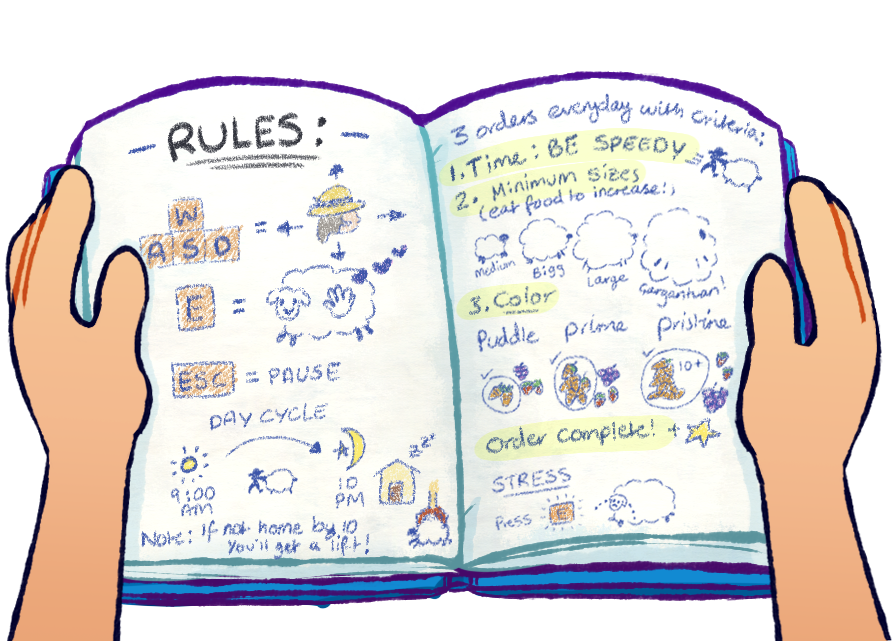 RULES:
W
A S D =
E =
ESC = PAUSE
DAY CYCLE
9:00
AM
10
PM
zzz
Note: If not home by 10
You'll get a lift!
3 orders everyday with criteria:
1. Time: BE SPEEDY
2. Minimum sizes
(eat food to increase!)
Medium
Bigg
Large
Gargantuan!
3. Color
Puddle prime pristine
10+
Order complete! +
STRESS
Press E